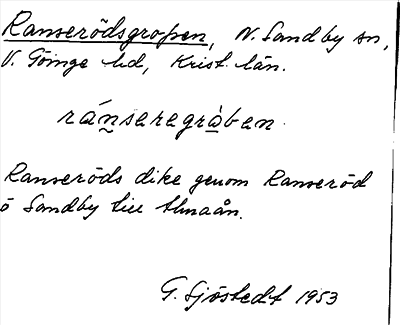 Ranserödsgropen, N. Sandby sn,
V. Göinge hd, Krist. län.
ránseregràben.
Ranseröds dike genom Ranseröd
ö Sandby till Almaån.
G. Sjöstedt 1953